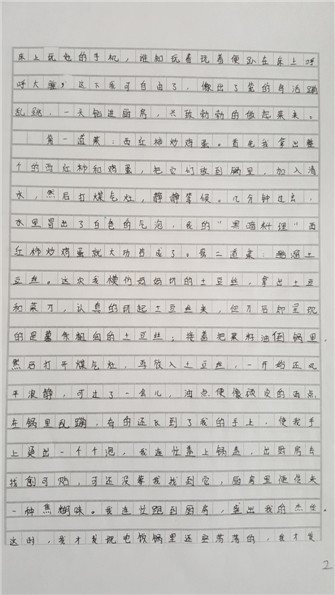 床上玩她的手机，谁知玩着玩着便趴在床上呼
呼大睡！这下我可自由了，像出了笼的鸟活蹦
乱跳，一头钻进厨房，兴致勃勃的做起菜来。
第一道菜，西红柿炒鸡蛋。首先我拿出整
个的西红柿和鸡蛋，把它们放到锅里，加入清
水，然后打煤气灶，静静等候。几分钟过去，
水里冒出了白色的气泡，我的"黑暗料理"西
红柿炒鸡蛋就大功告成了。第二道菜，土
豆丝。这次我模仿妈妈切的土豆丝，拿出土豆
和菜刀，认真的切起土豆丝来，但刀后却呈现
的是粗的土豆丝，接着把菜籽油倒锅里
然后打开煤气灶，再放入土豆丝，一开始还风
平浪静，可过了一会儿，油点便像滚烫的雨点
在锅里乱蹦，有的还飞到了我的手上，使我手
上起出一个个泡，我连忙盖上锅盖，出厨房去
找创可贴，可还没等我找到它，厨房里便传来
一种焦糊味。我连忙跑到厨房，盛出我的杰作
这时，我才发现电饭锅里还空荡荡的，我才发
2